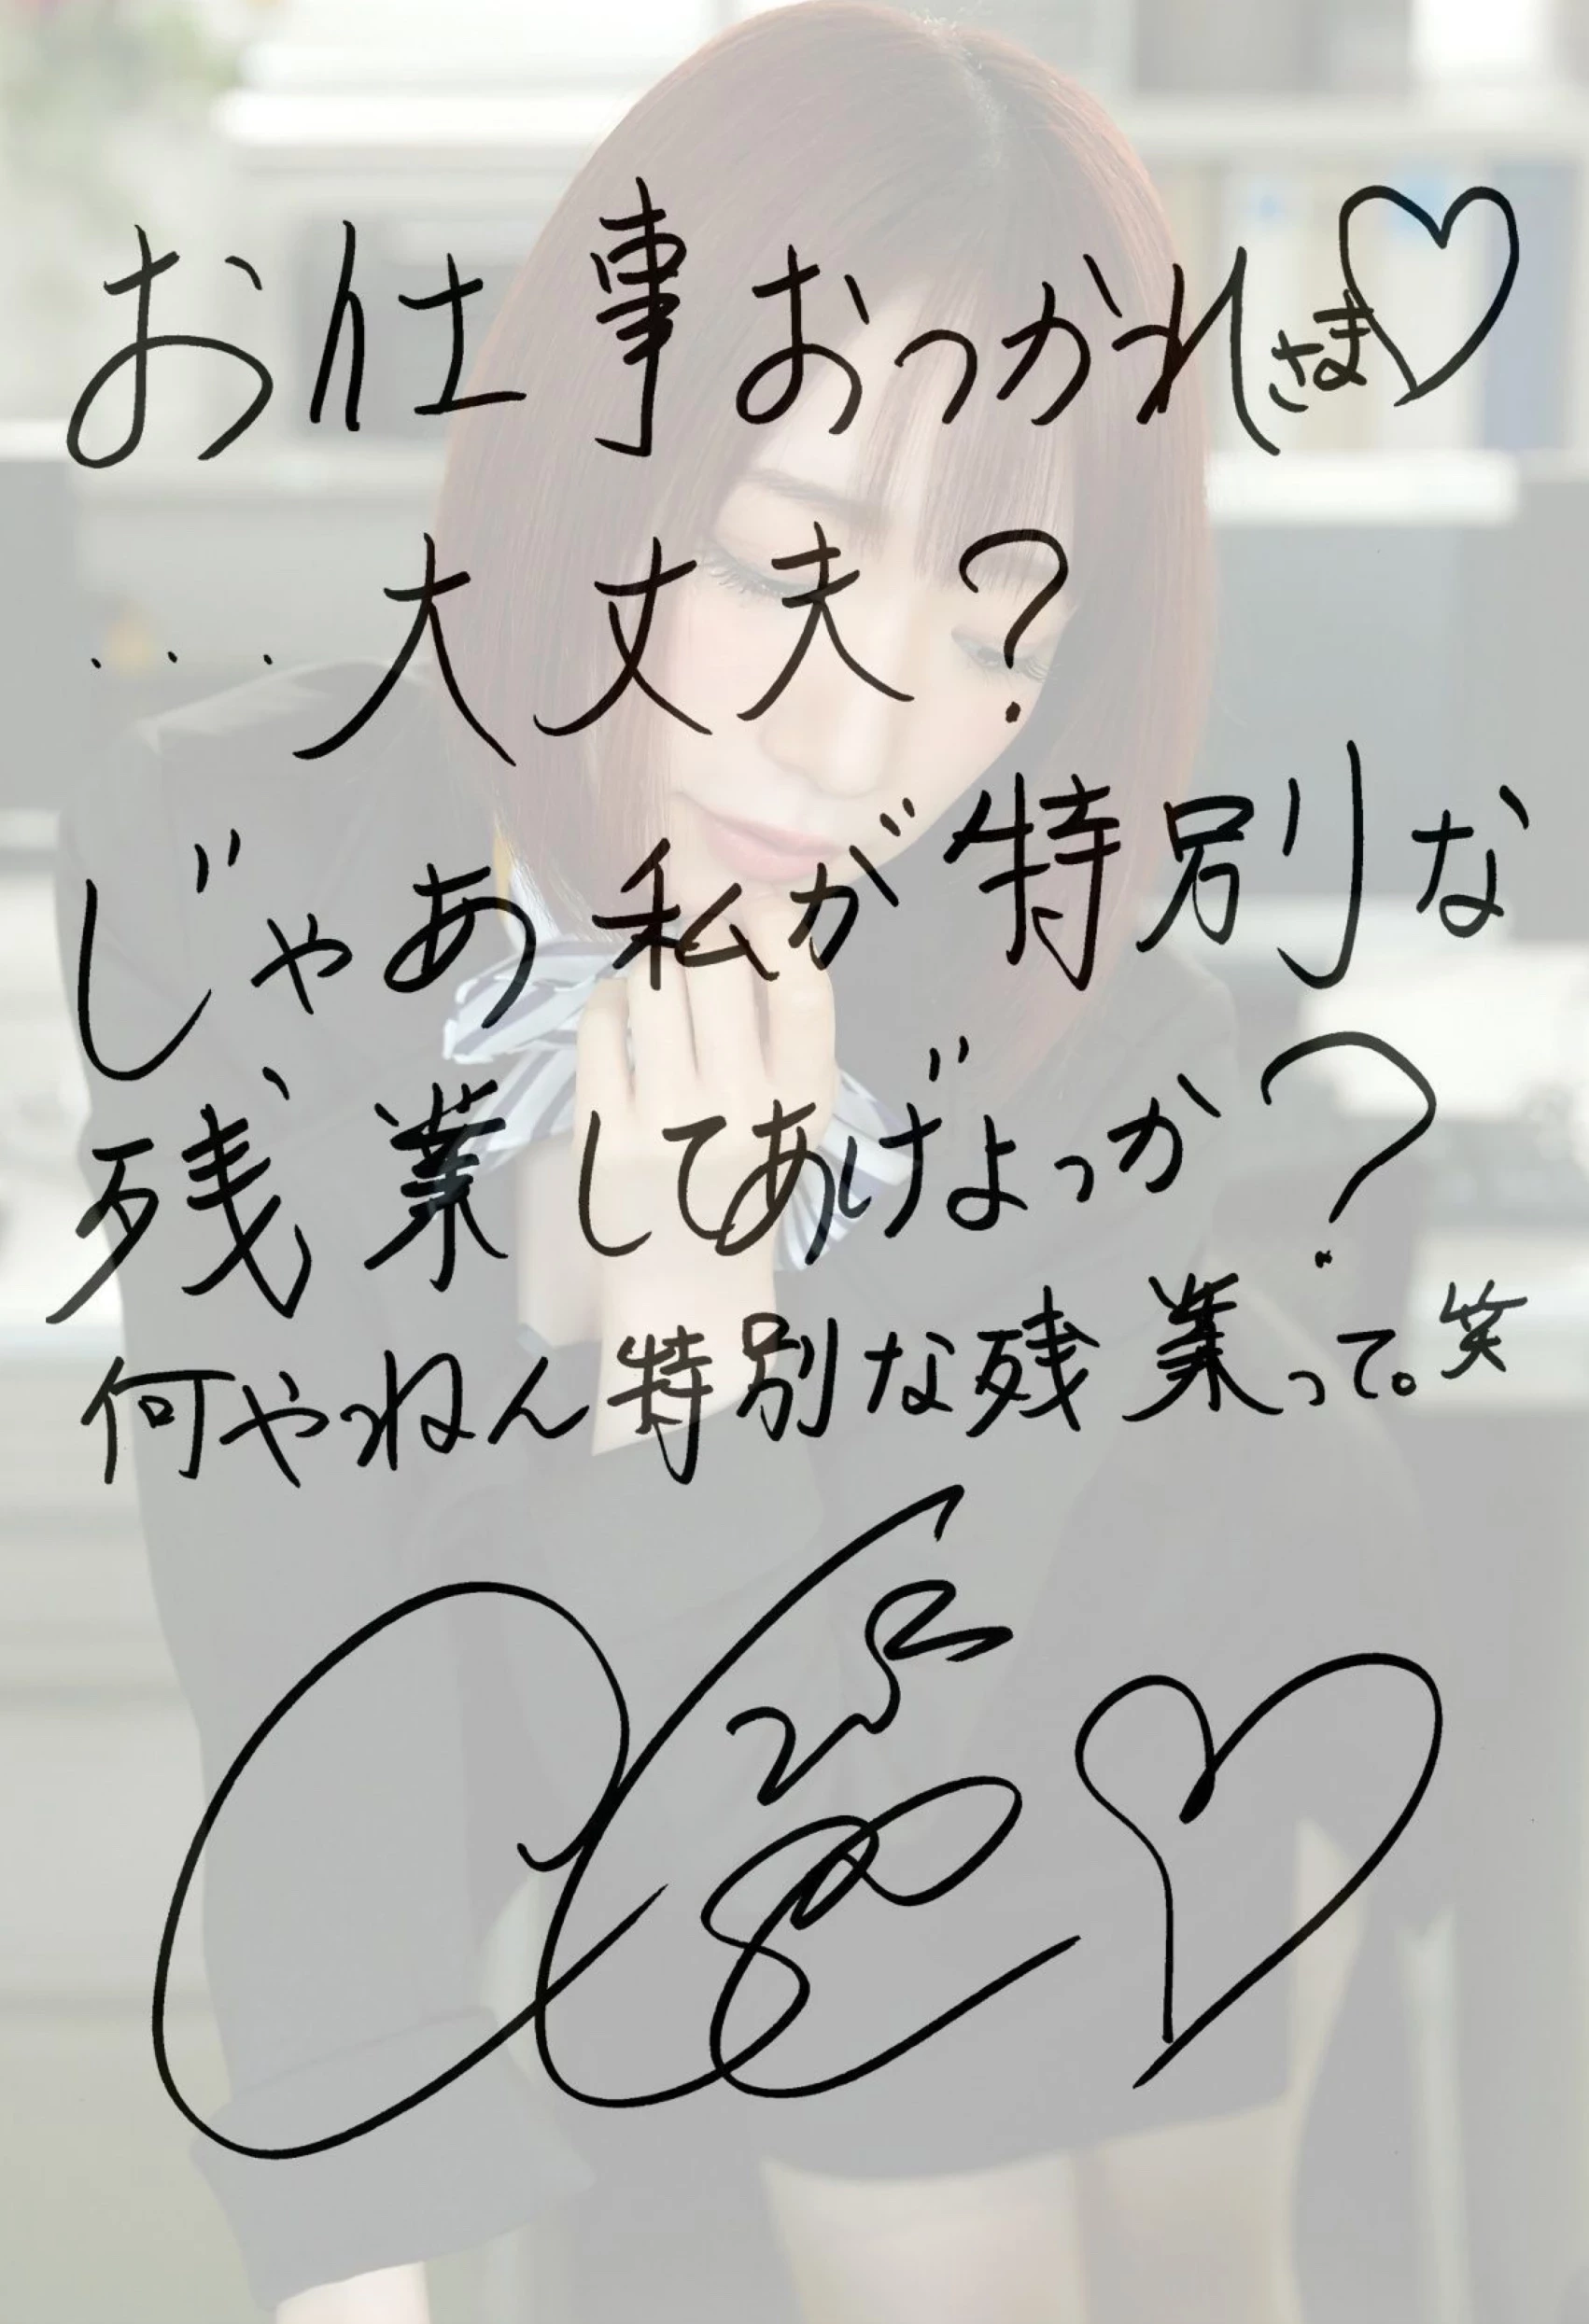 お仕事おつかれさま♡
...大丈夫?
じゃあ私が特別な
残業してあげよっか?
何やってねん特別な残業って。笑